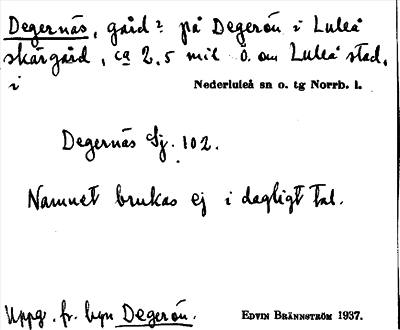 Degernäs, gård på Degerön i Luleå
skärgård, ca 2,5 mil ö. om Luleå stad,
i Nederluleå sn o. tg Norrb. l.
Degernäs Sj. 102.
Namnet brukas ej i dagligt tal.
Uppg. fr. byn Degerön. EDVIN BRÄNNSTRÖM 1937.